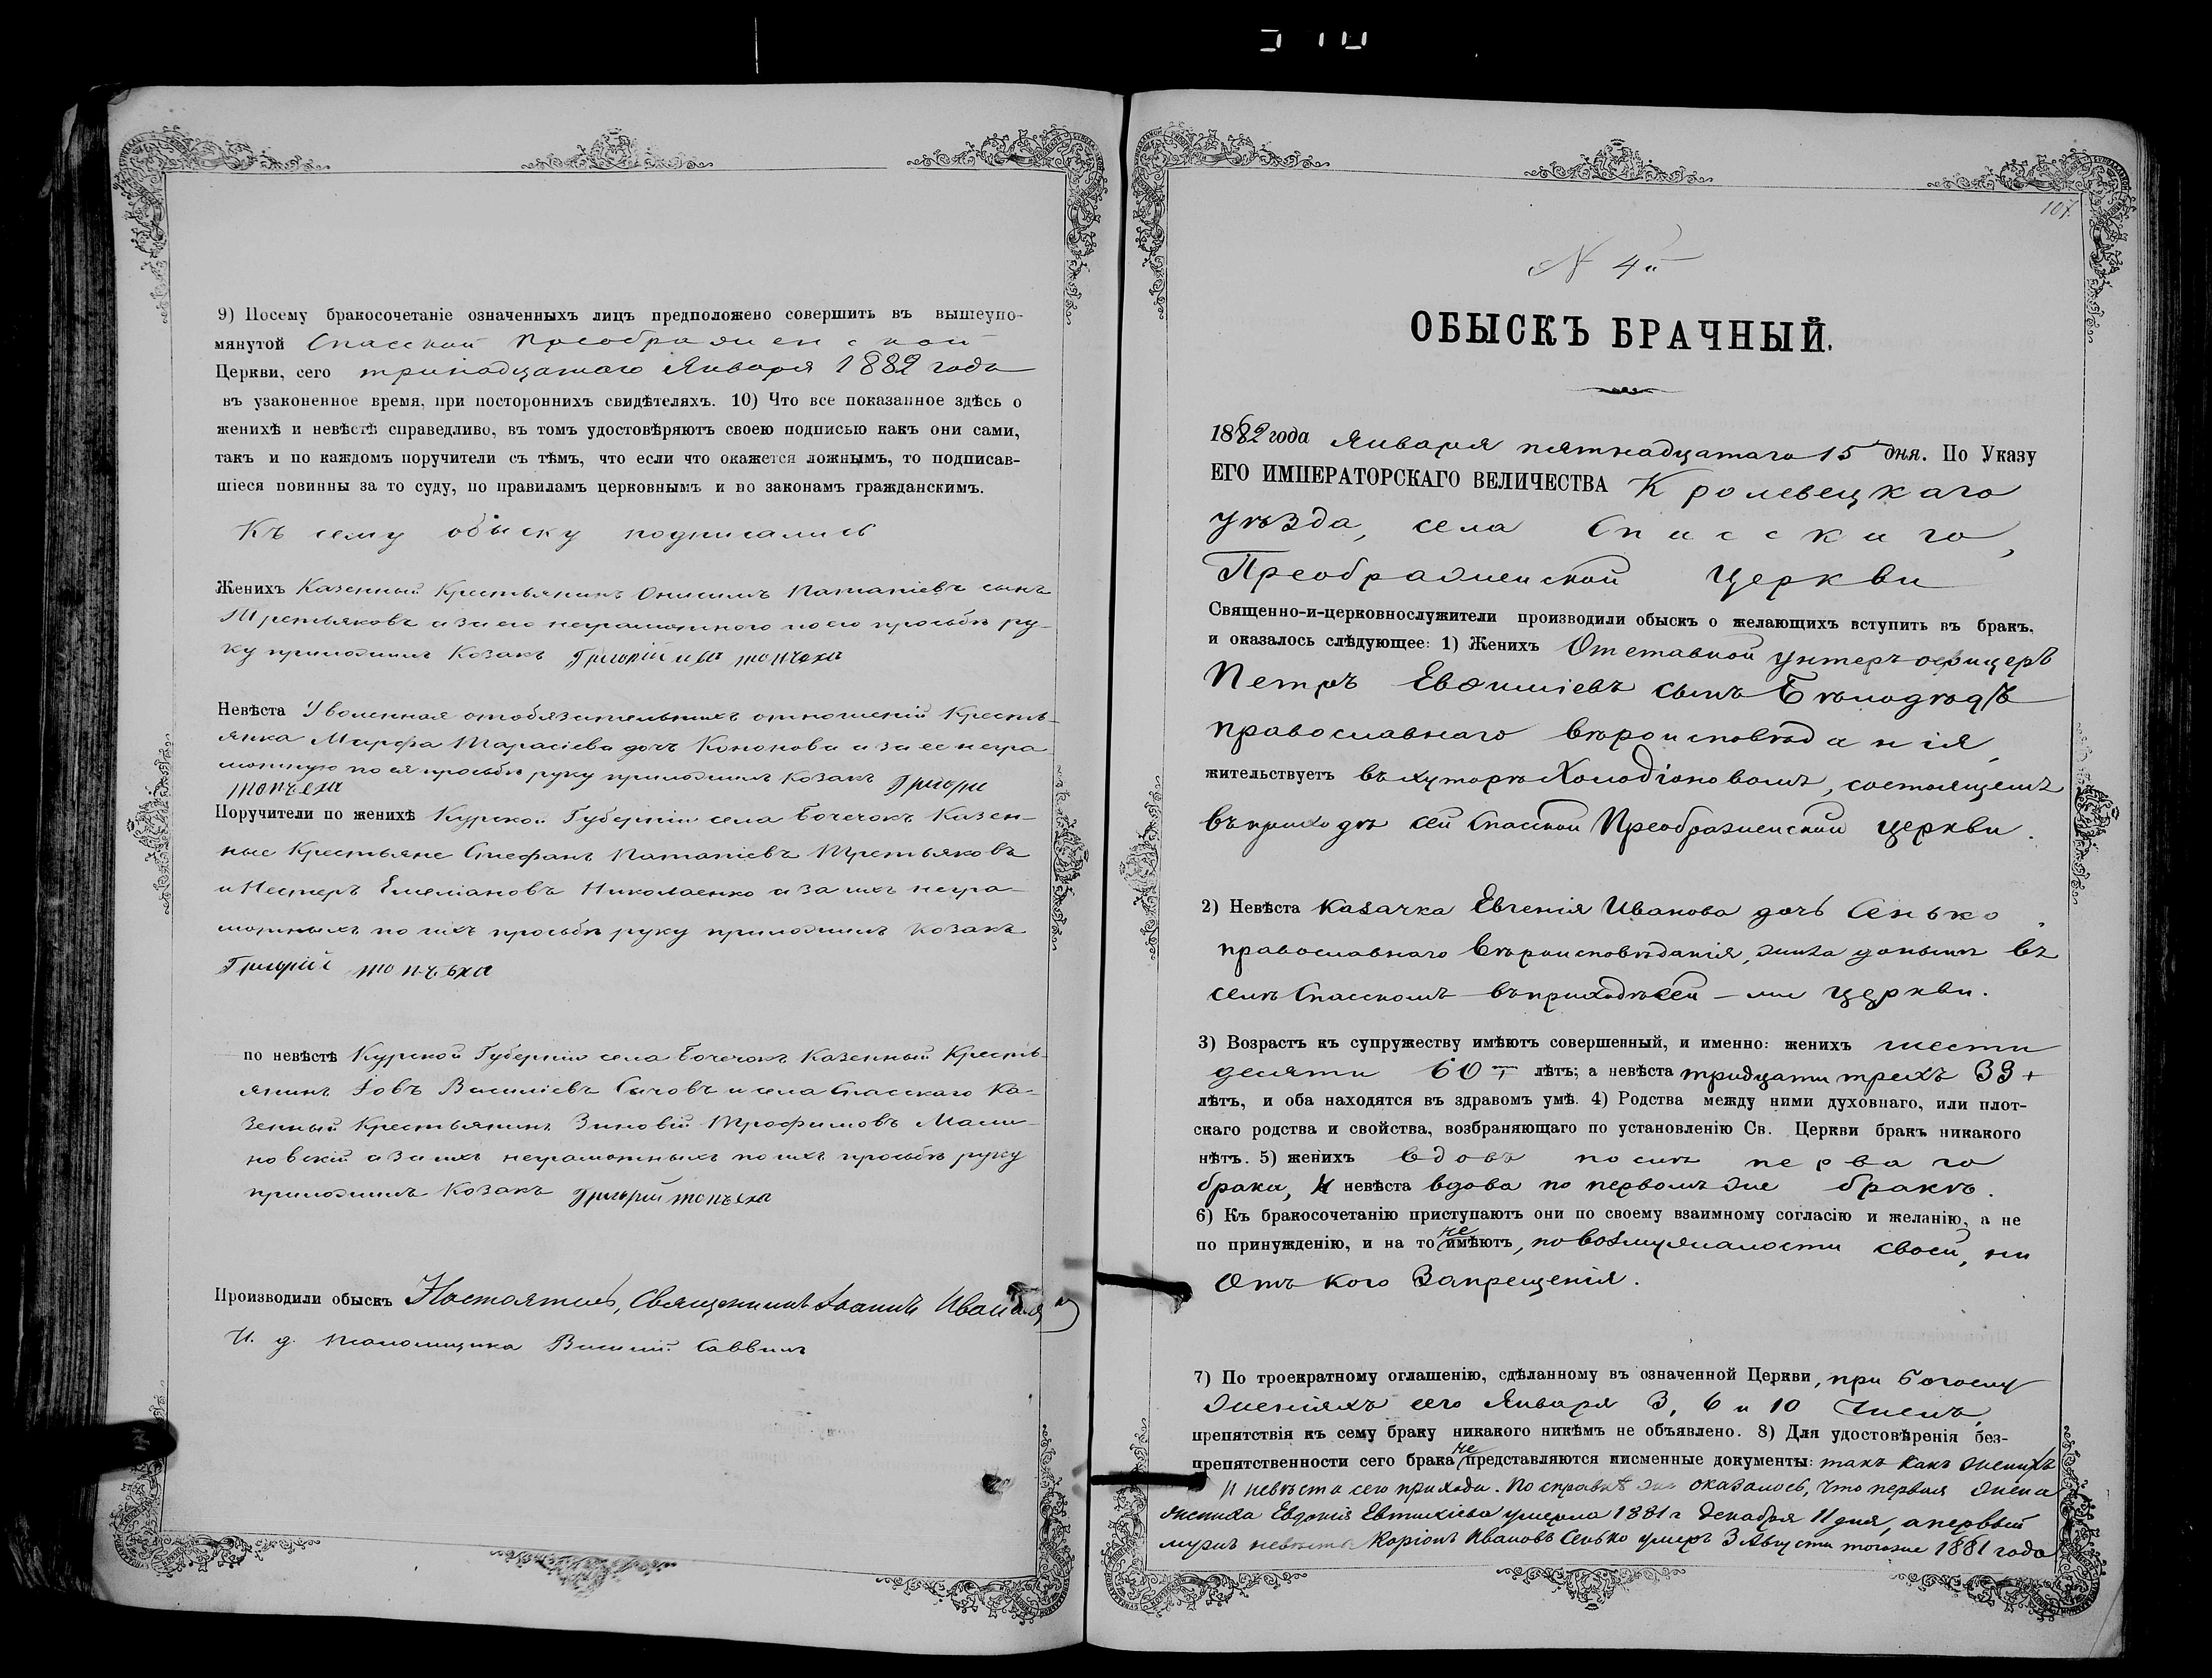 9) Посему бракосочетаніе означенныхъ лицъ предположено совершить въ вышеупо-
мянутой Спасской Преображенской
Церкви, сего тринадцатаго Января 1882 года
въ узаконенное время, при постороннихъ свидѣтеляхъ. 10) Что все показанное здѣсь о
женихѣ и невѣстѣ справедливо, въ томъ удостовѣряютъ своею подписью какъ они сами,
такъ и по каждомъ поручители съ тѣмъ, что если что окажется ложнымъ, то подписав-
шіеся повинны за то суду, по правиламъ церковнымъ и по законамъ гражданскимъ.
Къ сему обыску подписались
Женихъ Казенный Крестьянинъ Онисимъ Патапіевъ сынъ
Третьяковъ а за его неграмотного по его прозьбѣ ру-
ку приложилъ Козакъ Григорій топчеха
Невѣста Уволенная отобязательныхъ отношеній Кресть-
янка Марфа Тарасіева дочь Кононова а за ее негра-
мотную по ея прозьбѣ руку приложилъ Козакъ Григори
Поручители по женихѣ Курской Губерніи села Бочечокъ Казен-
ные Крестьяне Стефанъ Патапіевъ Третьяковъ
и Нестеръ Емеліановъ Николаенко а за ихъ негра-
мотныхъ по ихъ прозьбѣ руку приложилъ Козакъ
Григорій
по невѣстѣ Курской Губерніи села Бочечокъ Казенный Кресть-
янинъ Іовъ Василіевъ Сычовъ и села Спасскаго Ка-
зенный Крестьянинъ Зиновій Трофимовъ Мали-
новскій а за ихъ неграмотныхъ по ихъ прозьбѣ руку
приложилъ Козакъ Григорій
Производили обыскъ Настоятель, Священникъ Іоаннъ
И. д. псаломщика Василій Саввинъ
107
N 4й
ОБЫСКЪ БРАЧНЫЙ.
1882 года Января пятнадцатаго 15 дня. По Указу
ЕГО ИМПЕРАТОРСКАГО ВЕЛИЧЕСТВА Кролевецкаго
уѣзда, села Спасскаго,
Преображенской Церкви
Священно-и-церковнослужители производили обыскъ о желающихъ вступить въ бракъ,
и оказалось слѣдующее: 1) Женихъ Отставной унтеръ офицеръ
Петръ Евѳиміевъ сынъ Бѣлодѣдъ
православнаго вѣроисповѣданія,
жительствуетъ въ хуторѣ Холодіоновомъ, состоящемъ
въ приходѣ сей Спасской Преображенской церкви.
2) Невѣста Казачка Евгенія Иванова дочь Сенько,
православнаго вѣроисповѣданія, жила донынѣ въ
селѣ Спасскомъ въ приходѣ сей-же церкви.
3) Возрастъ къ супружеству имѣютъ совершенный, и именно: женихъ шести
десяти 60-т лѣтъ; а невѣста тридцати трехъ 33 +
лѣтъ, и оба находятся въ здравомъ умѣ. 4) Родства между ними духовнаго, или плот-
скаго родства и свойства, возбраняющаго по установленію Св. Церкви бракъ никакого
нѣтъ. 5) женихъ вдовъ послѣ перваго
брака, И невѣста вдова по первомъ же бракѣ.
6) Къ бракосочетанію приступаютъ они по своему взаимному согласію и желанію, а не
по принужденію, и на то не имѣютъ, по возмужалости своей, ни
отъ кого Запрещенія.
7) По троекратному оглашенію, сдѣланному въ означенной Церкви, при богослу
женіяхъ сего Января 3, 6 и 10 чиселъ,
препятствія къ сему браку никакого никѣмъ не объявлено. 8) Для удостовѣренія без-
препятственности сего брака не представляются письменные документы: такъ какъ женихъ
И невѣста сего прихода. По справкѣ же оказалось, что первая жена
жениха Евдокія Евтихіева умерла 1881 г декабря 11 дня, а первый
мужъ невѣсты Иларіонъ Ивановъ Сенько умеръ 3 Августа тогоже 1881 года